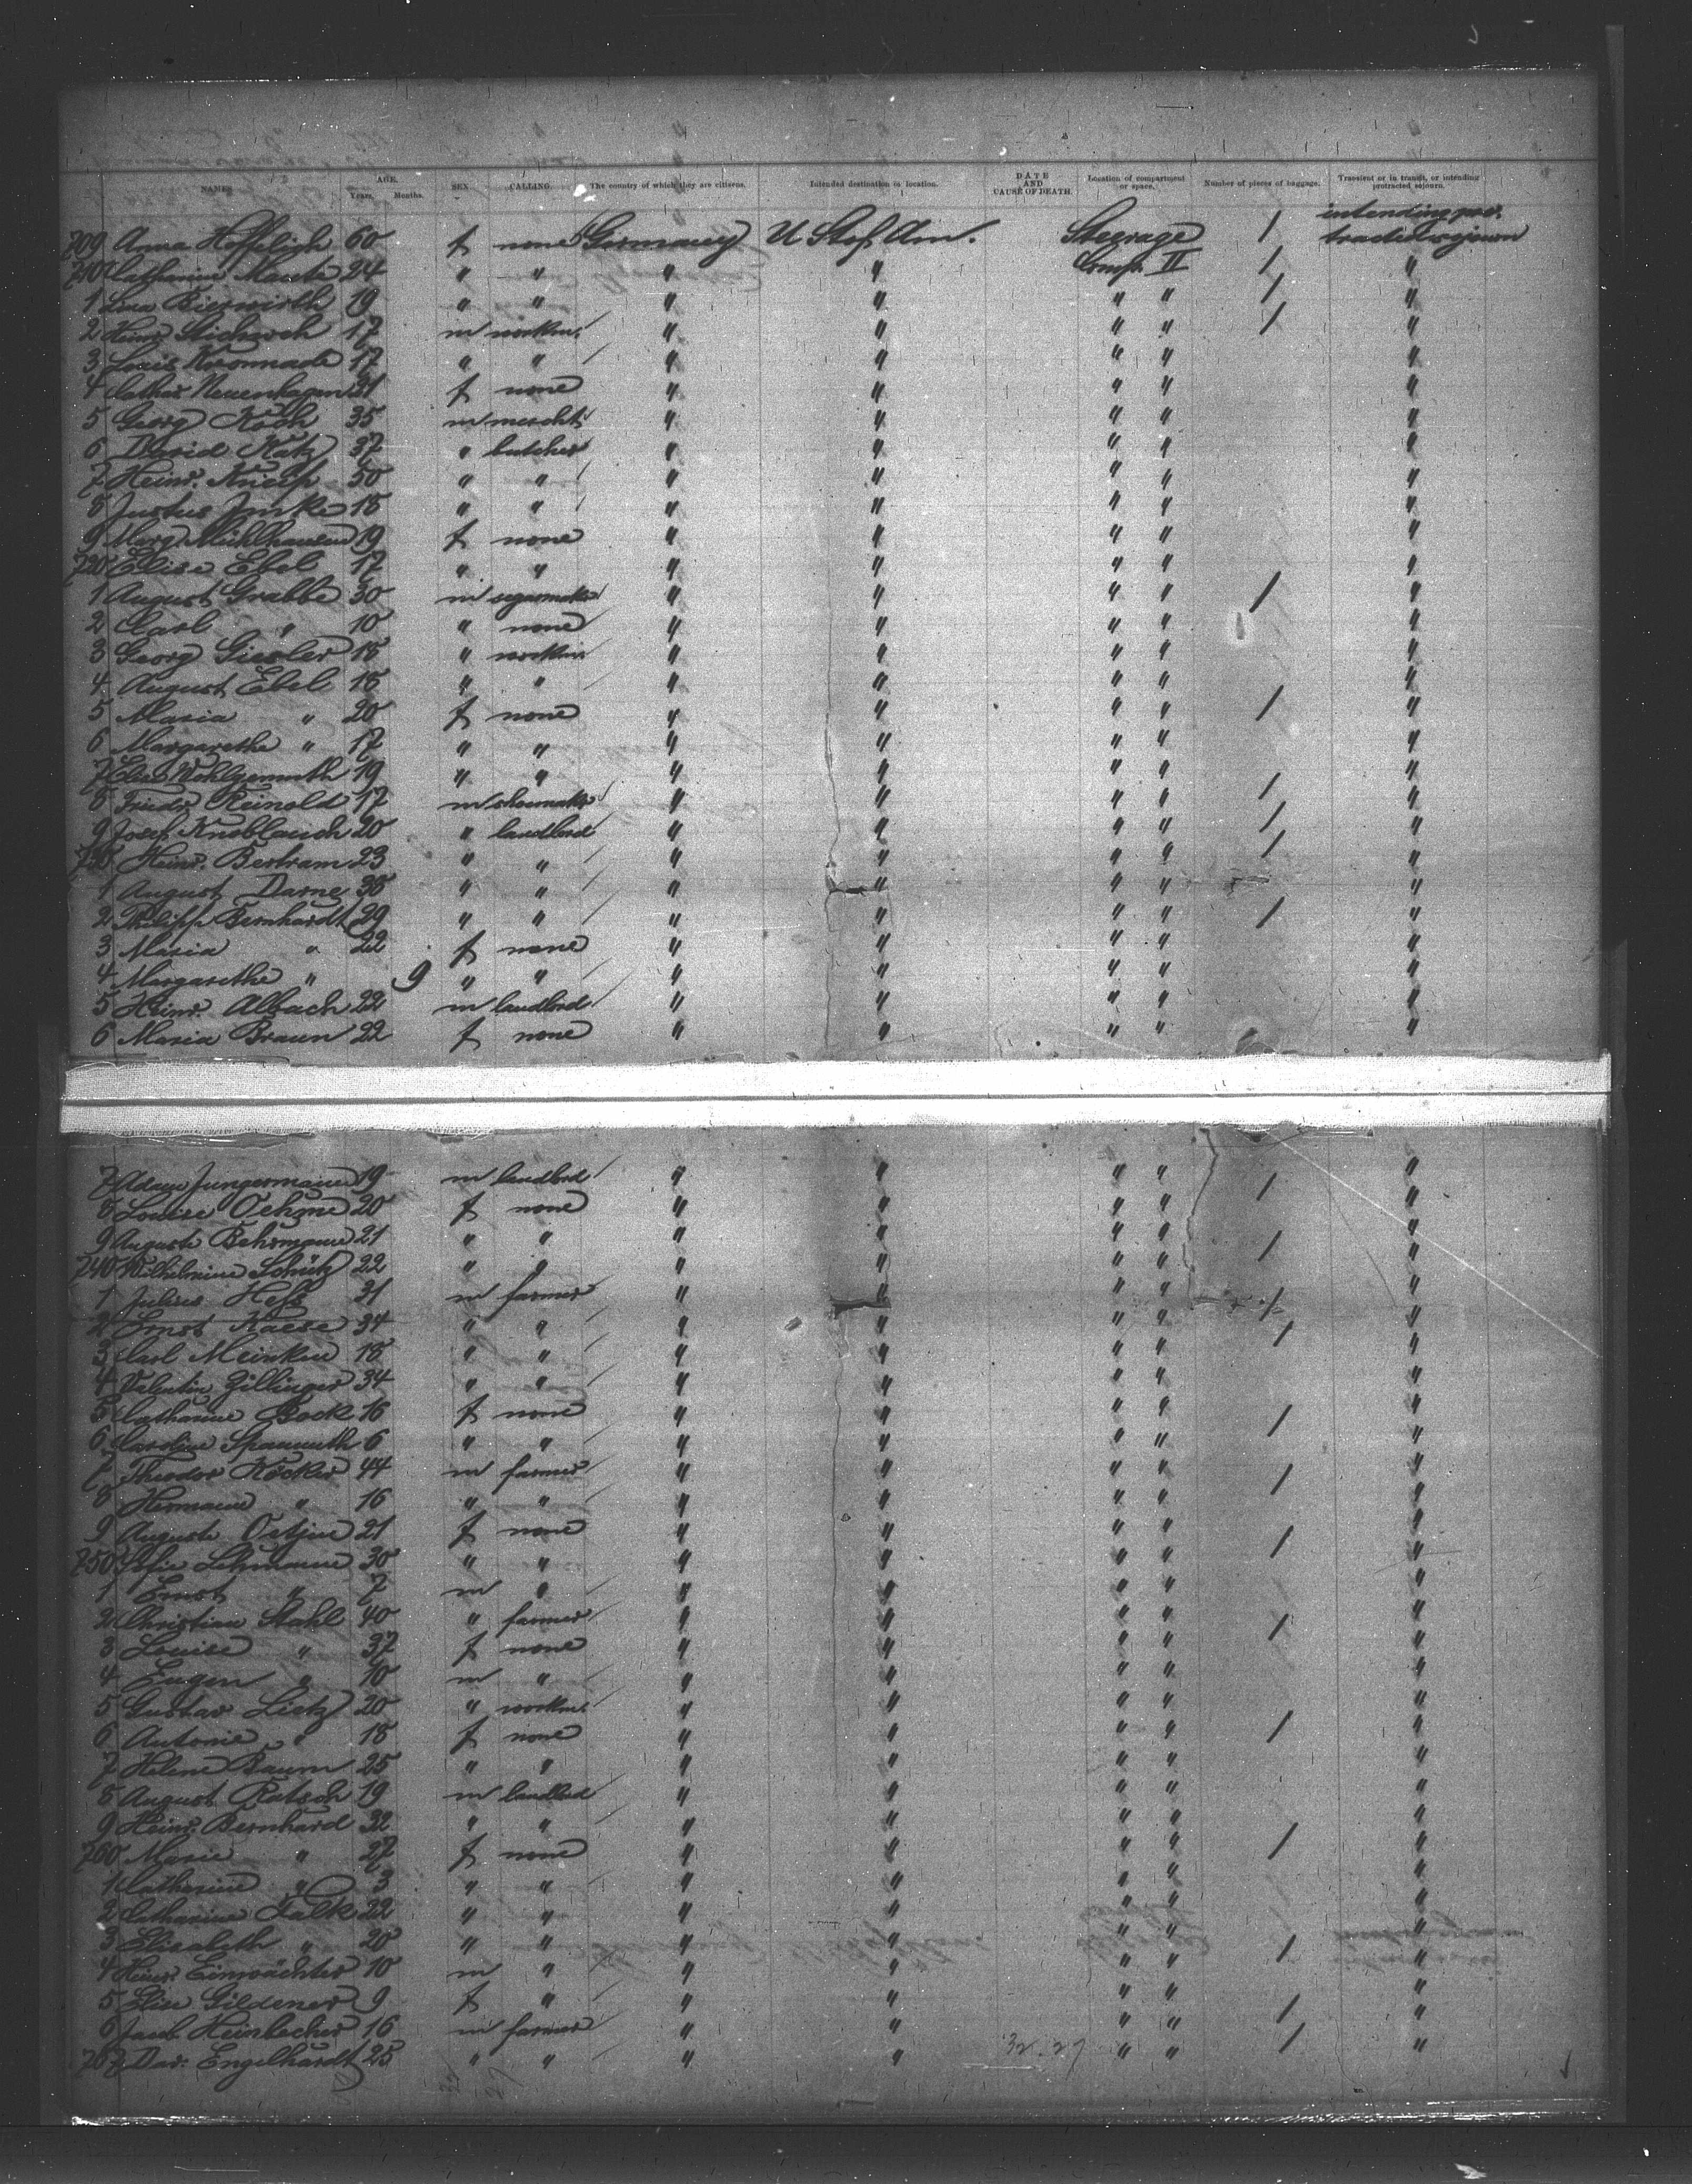 NAMES. AGE. Years. Months. SEX. CALLING. The country of which they are citizens. Intended destination or location. DATE AND CAUSE OF DEATH. Location of compartment or space. Number of pieces of baggage. Transient or in transit, or intending protracted sojourn.
709 Anna 60 f none Germany U St of Am. Steerage / intending pro-tracted sojourn
710 Catharine 24 " " " " Comp. II / "
1 Bierwirth 19 " " " " " " / "
2 Heinr. 17 m workm. " " " " / "
3 Louis 17 " " " " " " "
4 Cathar. Neuenhagen 21 f none " " " " "
5 Georg Koch 35 m mercht. " " " " "
6 David Katz 37 " butcher " " " " "
7 Heinr. 50 " " " " " " "
8 Justus Imke 18 " " " " " " "
9 Marg. Mühlhausen 19 f none " " " " "
720 Elise Ebel 17 " " " " " " "
1 August Grabbe 30 m segarmakr " " " " / "
2 Carl " 10 " none " " " " "
3 Georg Giesler 18 " workm. " " " " "
4 August Ebel 18 " " " " " " "
5 Maria " 20 f none " " " " / "
6 Margarethe " 17 " " " " " " "
7 Elise Wohlgemuth 19 " " " " " " "
8 Friedr. Reinold 17 m shoemakr " " " " / "
9 Josef Knoblauch 20 " landlord " " " " / "
730 Heinr. Bertram 23 " " " " " " / "
1 August Darne " " " " " " "
2 Philipp Bernhardt 29 " " " " " " / "
3 Maria " 22 f none " " " " "
4 Margarethe " 9 " " " " " " "
5 Heinr. Albach 22 m landlord " " " " "
6 Maria Braun 22 f none " " " " "
7 Adam Jungermann 19 m landlord " " " " / "
8 Louise Oehme 20 f none " " " " "
9 Auguste Behrmann 21 " " " " " " / "
740 Wilhelmine Schütz 22 " " " " " " "
1 Julius Heß 31 m farmer " " " " / "
2 Ernst Kaese 34 " " " " " " / "
3 Carl Meinken 18 " " " " " " "
4 Valentin Zillinger 34 " " " " " " "
5 Catharine Bock 16 f none " " " " / "
6 Caroline Spannuth 6 " " " " " " "
7 Theodor Köcker 44 m farmer " " " " / "
8 Hermann " 16 " " " " " " "
9 Auguste Ostjen 21 f none " " " " / "
750 Sofie Lehmann 30 " " " " " " "
1 Ernst " 7 m " " " " " "
2 Christian Stahl 40 " farmer " " " " / "
3 Louise " 37 f none " " " " "
4 Eugen " 10 m " " " " " "
5 Gustav Lietz 20 " workm. " " " " "
6 Antonie " 18 f none " " " " / "
7 Helene Baum 25 " " " " " " "
8 August Ratsch 19 m landlord " " " " "
9 Heinr. Bernhard 32 " " " " " " "
760 Marie " 27 f none " " " " / "
1 Catharine " 3 " " " " " " "
2 Catharine Falk 22 " " " " " " "
3 Elisabeth " 20 " " " " " " / "
4 Heinr. Einwächter 10 m " " " " " "
5 Elise Gildener 9 f " " " " " / "
6 Jacob Heinbecher 16 m farmer " " " " / "
767 Dav: Engelhardt 25 " " " " " " "